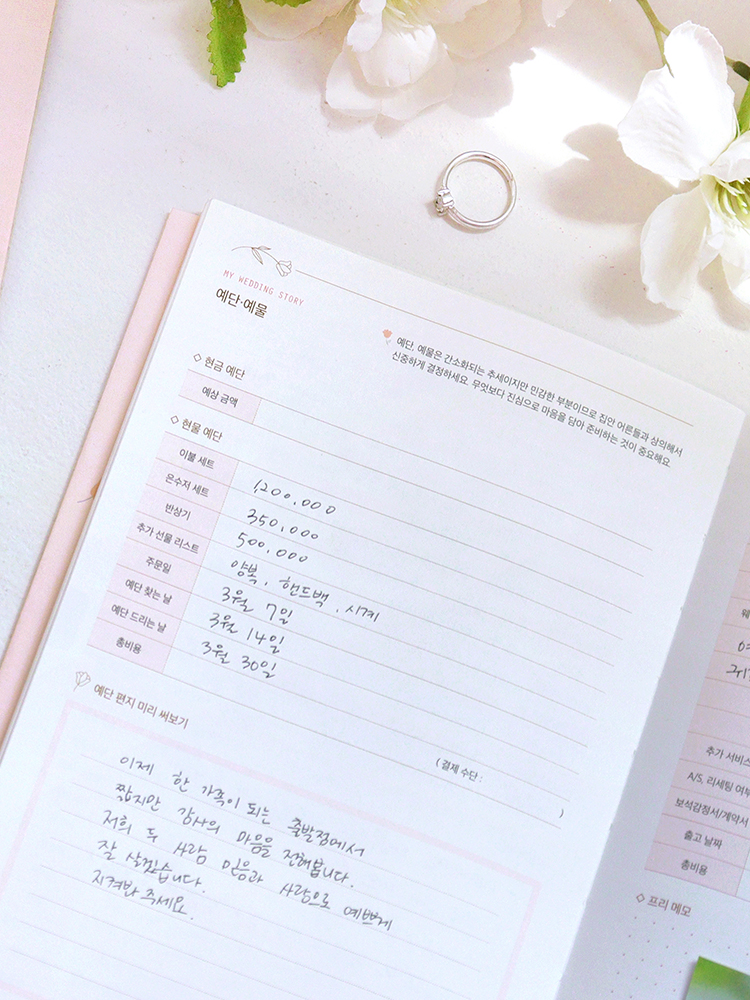 MY WEDDING STORY
예단·예물
예단, 예물은 간소화되는 추세이지만 민감한 부분이므로 집안 어른들과 상의해서
신중하게 결정하세요. 무엇보다 진심으로 마음을 담아 준비하는 것이 중요해요.
◇ 현금 예단
예상 금액
◇ 현물 예단
이불 세트 1,200,000
은수저 세트 350,000
반상기 500,000
추가 선물 리스트 양복, 핸드백, 시계
주문일 3월 7일
예단 찾는 날 3월 14일
예단 드리는 날 3월 30일
총비용
(결제 수단 : )
예단 편지 미리 써보기
이제 한 가족이 되는 출발점에서
짧지만 감사의 마음을 전해봅니다.
저희 두 사람 믿음과 사랑으로 예쁘게
잘 살겠습니다.
지켜봐 주세요.
추가 서비스
A/S, 리세팅 여부
보석감정서/계약서
출고 날짜
총비용
◇ 프리 메모